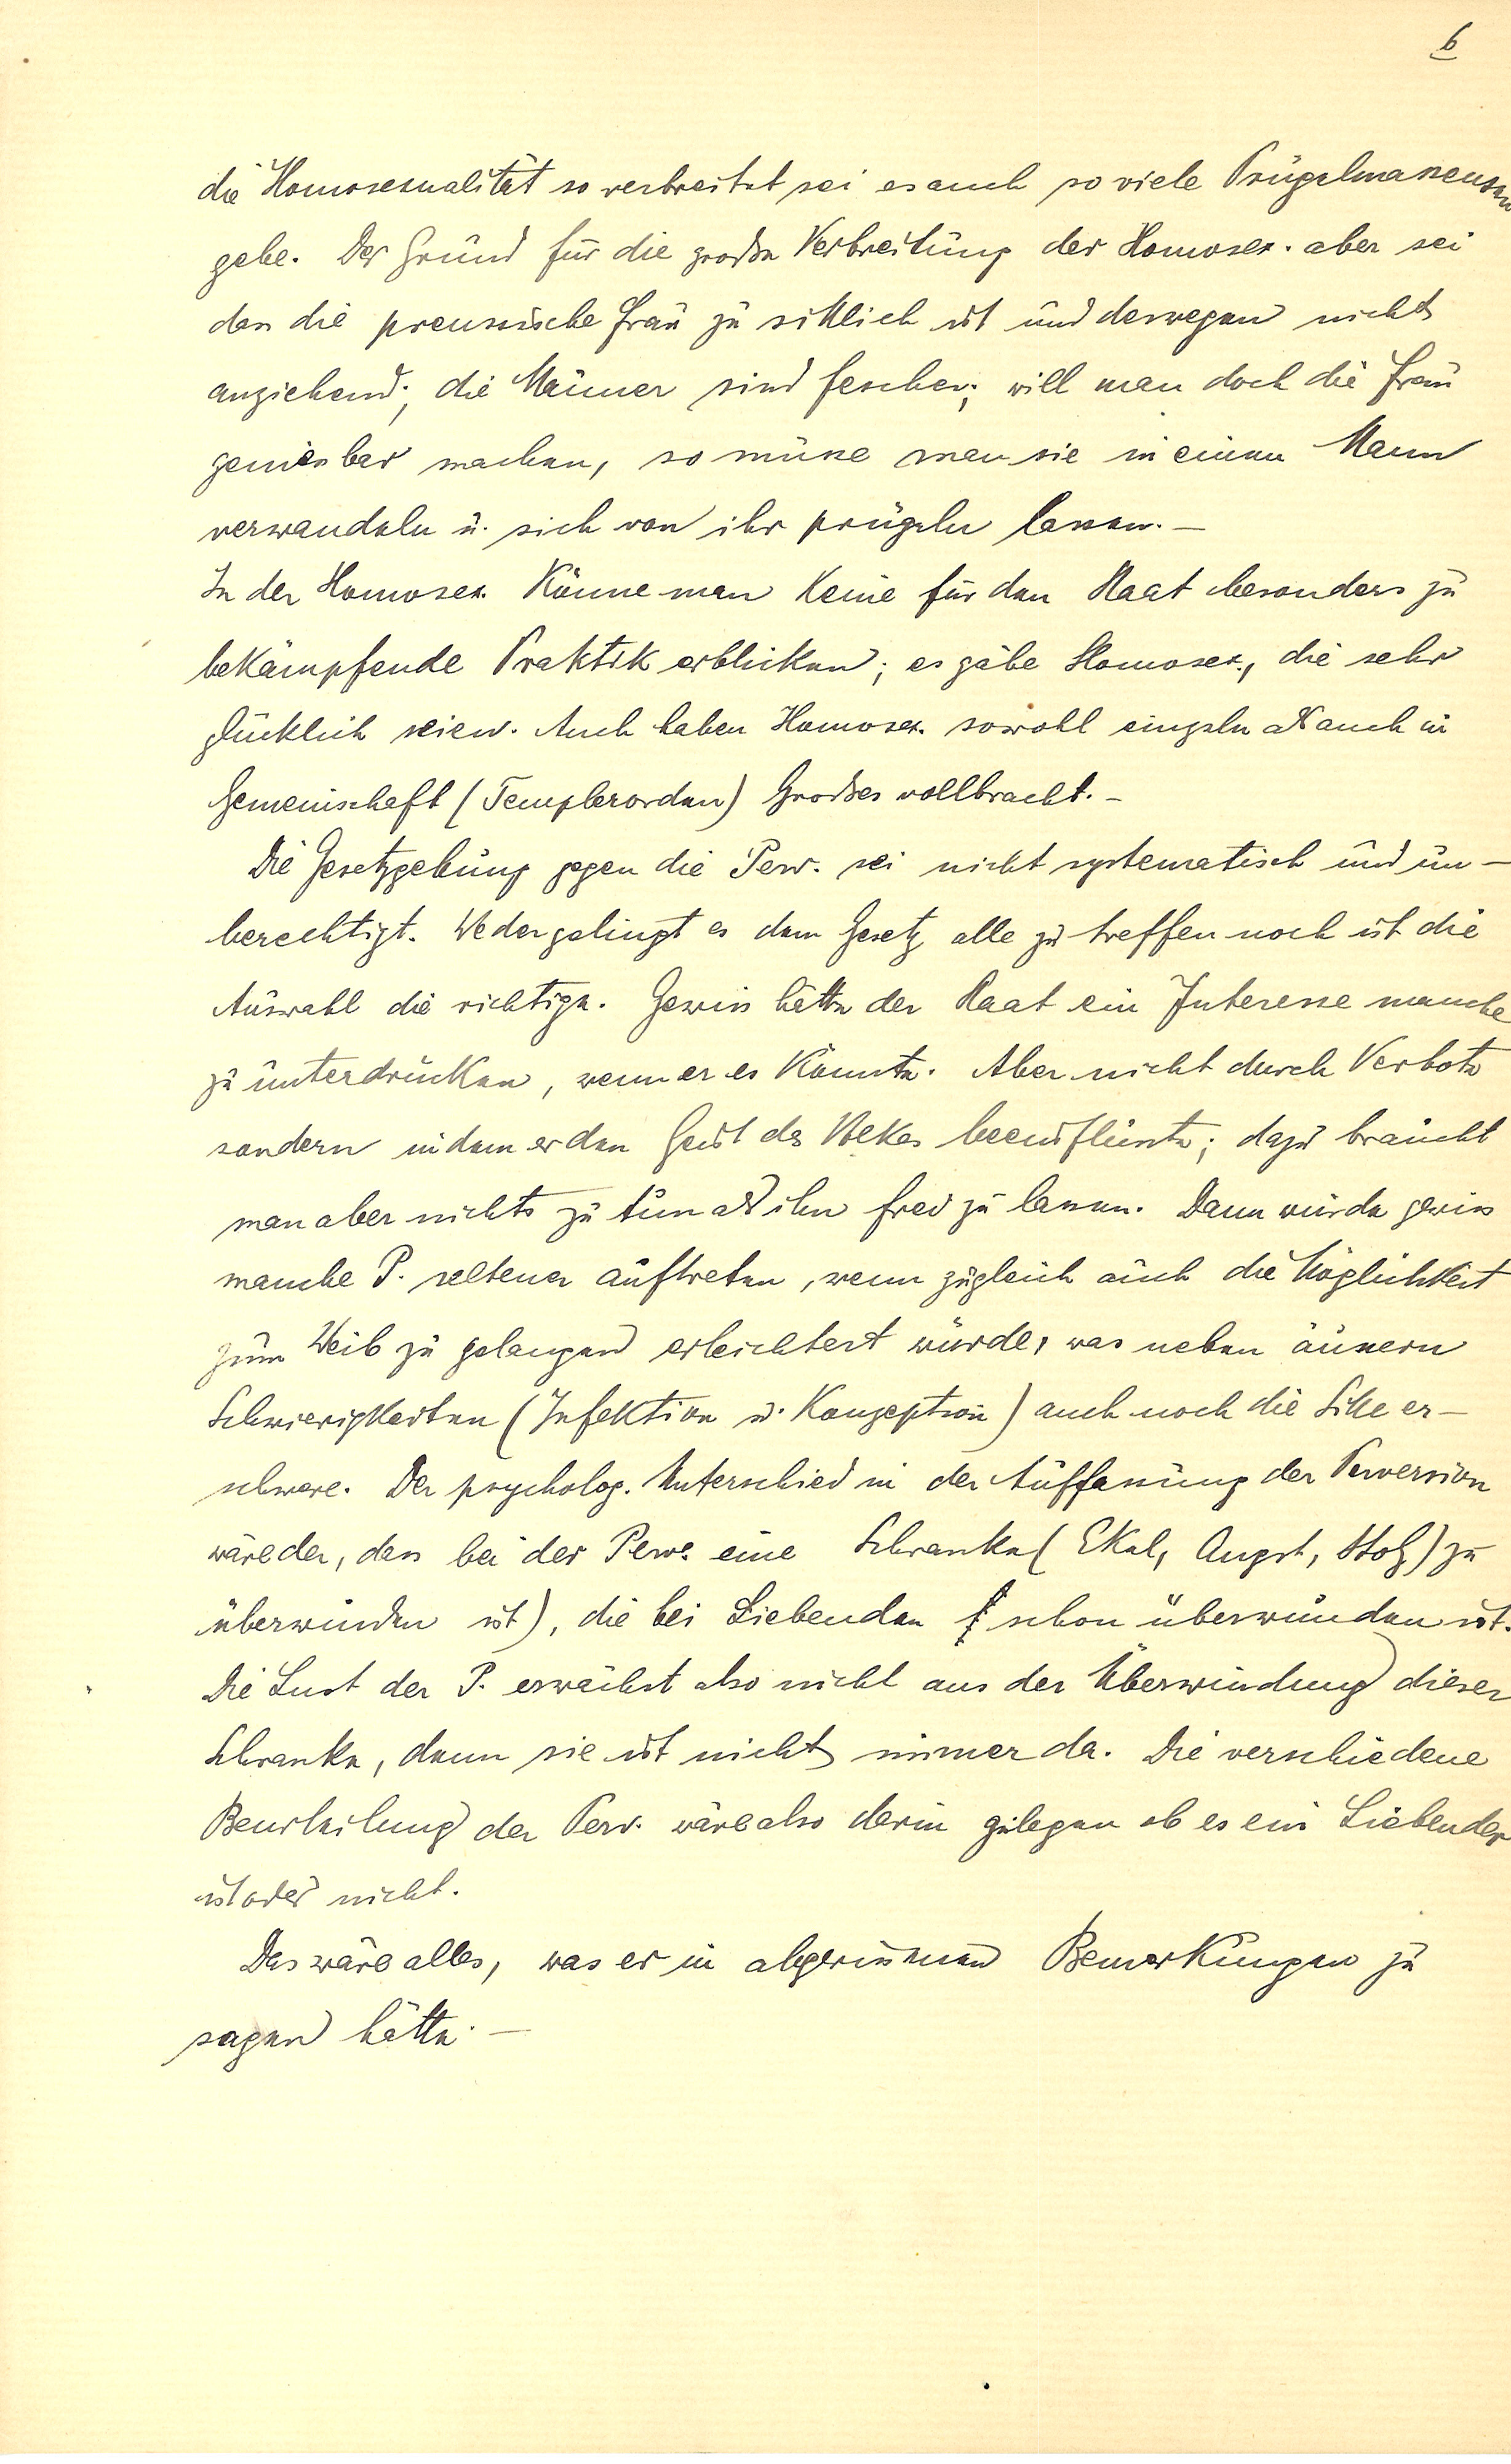 6
die Homosexualität so verbreitet sei es auch so viele Prügelmasseusen
gebe. Der Grund für die große Verbreitung der Homosex. aber sei
dass die preussische Frau zu sittlich ist und deswegen nicht
anziehend; die Männer sind fescher; will man doch die Frau
geniessbar machen, so müsse man sie in einen Mann
verwandeln u. sich von ihr prügeln lassen. –
In der Homosex. Könne man Keine für den Staat besonders zu
beKämpfende PraktiK erblicken; es gäbe Homosex., die sehr
glücklich seien. Auch haben Homosex. sowohl einzeln als auch in
Gemeinschaft (Templerorden) Großes vollbracht. –
Die Gesetzgebung gegen die Perv. sei nicht systematisch und un–
berechtigt. Weder gelingt es dem Gesetz alle zu treffen noch ist die
Auswahl die richtige. Gewiss hätte der Staat ein Interesse manche
zu unterdrücken, wenn er es Könnte. Aber nicht durch Verbote
sondern indem er den Geist des Volkes beeinflusste; dazu braucht
man aber nichts zu tun als ihn frei zu lassen. Dann würde gewiss
manche P. seltener auftreten, wenn zugleich auch die Möglichkeit
zum Weib zu gelangen erleichtert würde, was neben äussern
Schwierigkeiten (Infektion u. Konzeption) auch noch die Sitte er–
schwere. Der psycholog. Unterschied in der Auffassung der Perversion
wäre der, dass bei der Perv. eine Schranke (Ekel, Angst, Stolz) zu
überwinden ist), die bei Liebenden schon überwunden ist.
Die Lust der P. erwächst also nicht aus der Überwindung dieser
Schranke, denn sie ist nicht immer da. Die verschiedene
Beurteilung der Perv. wäre also darin gelegen ob es ein Liebender
ist oder nicht.
Das wäre alles, was er in abgerissenen Bemerkungen zu
sagen hätte. –